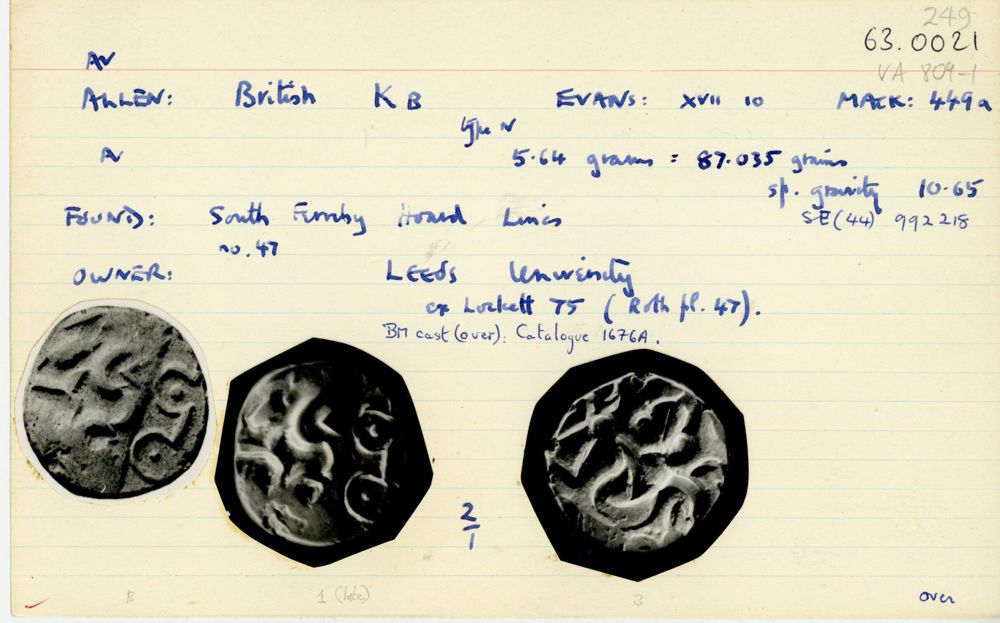 249
63.0021
VA 809-1
AV
ALLEN: British KB EVANS: XVII 10 MACK: 449a
type N
N 5.64 grams = 87.035 grains
sp. gravity 10.65
FOUND: South Ferriby Hoard Lincs SE(44) 992218
no. 47
OWNER: LEEDS University
ex Lockett T5 (Roth pl. 47).
BM cast (over): Catalogue 1676A.
2
1
B 1 (late) 3 over